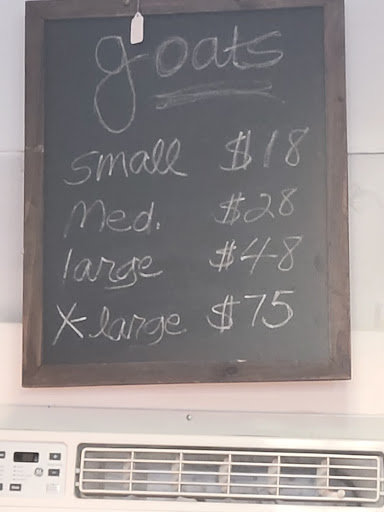 goats
small $18
Med. $28
large $48
X large $75